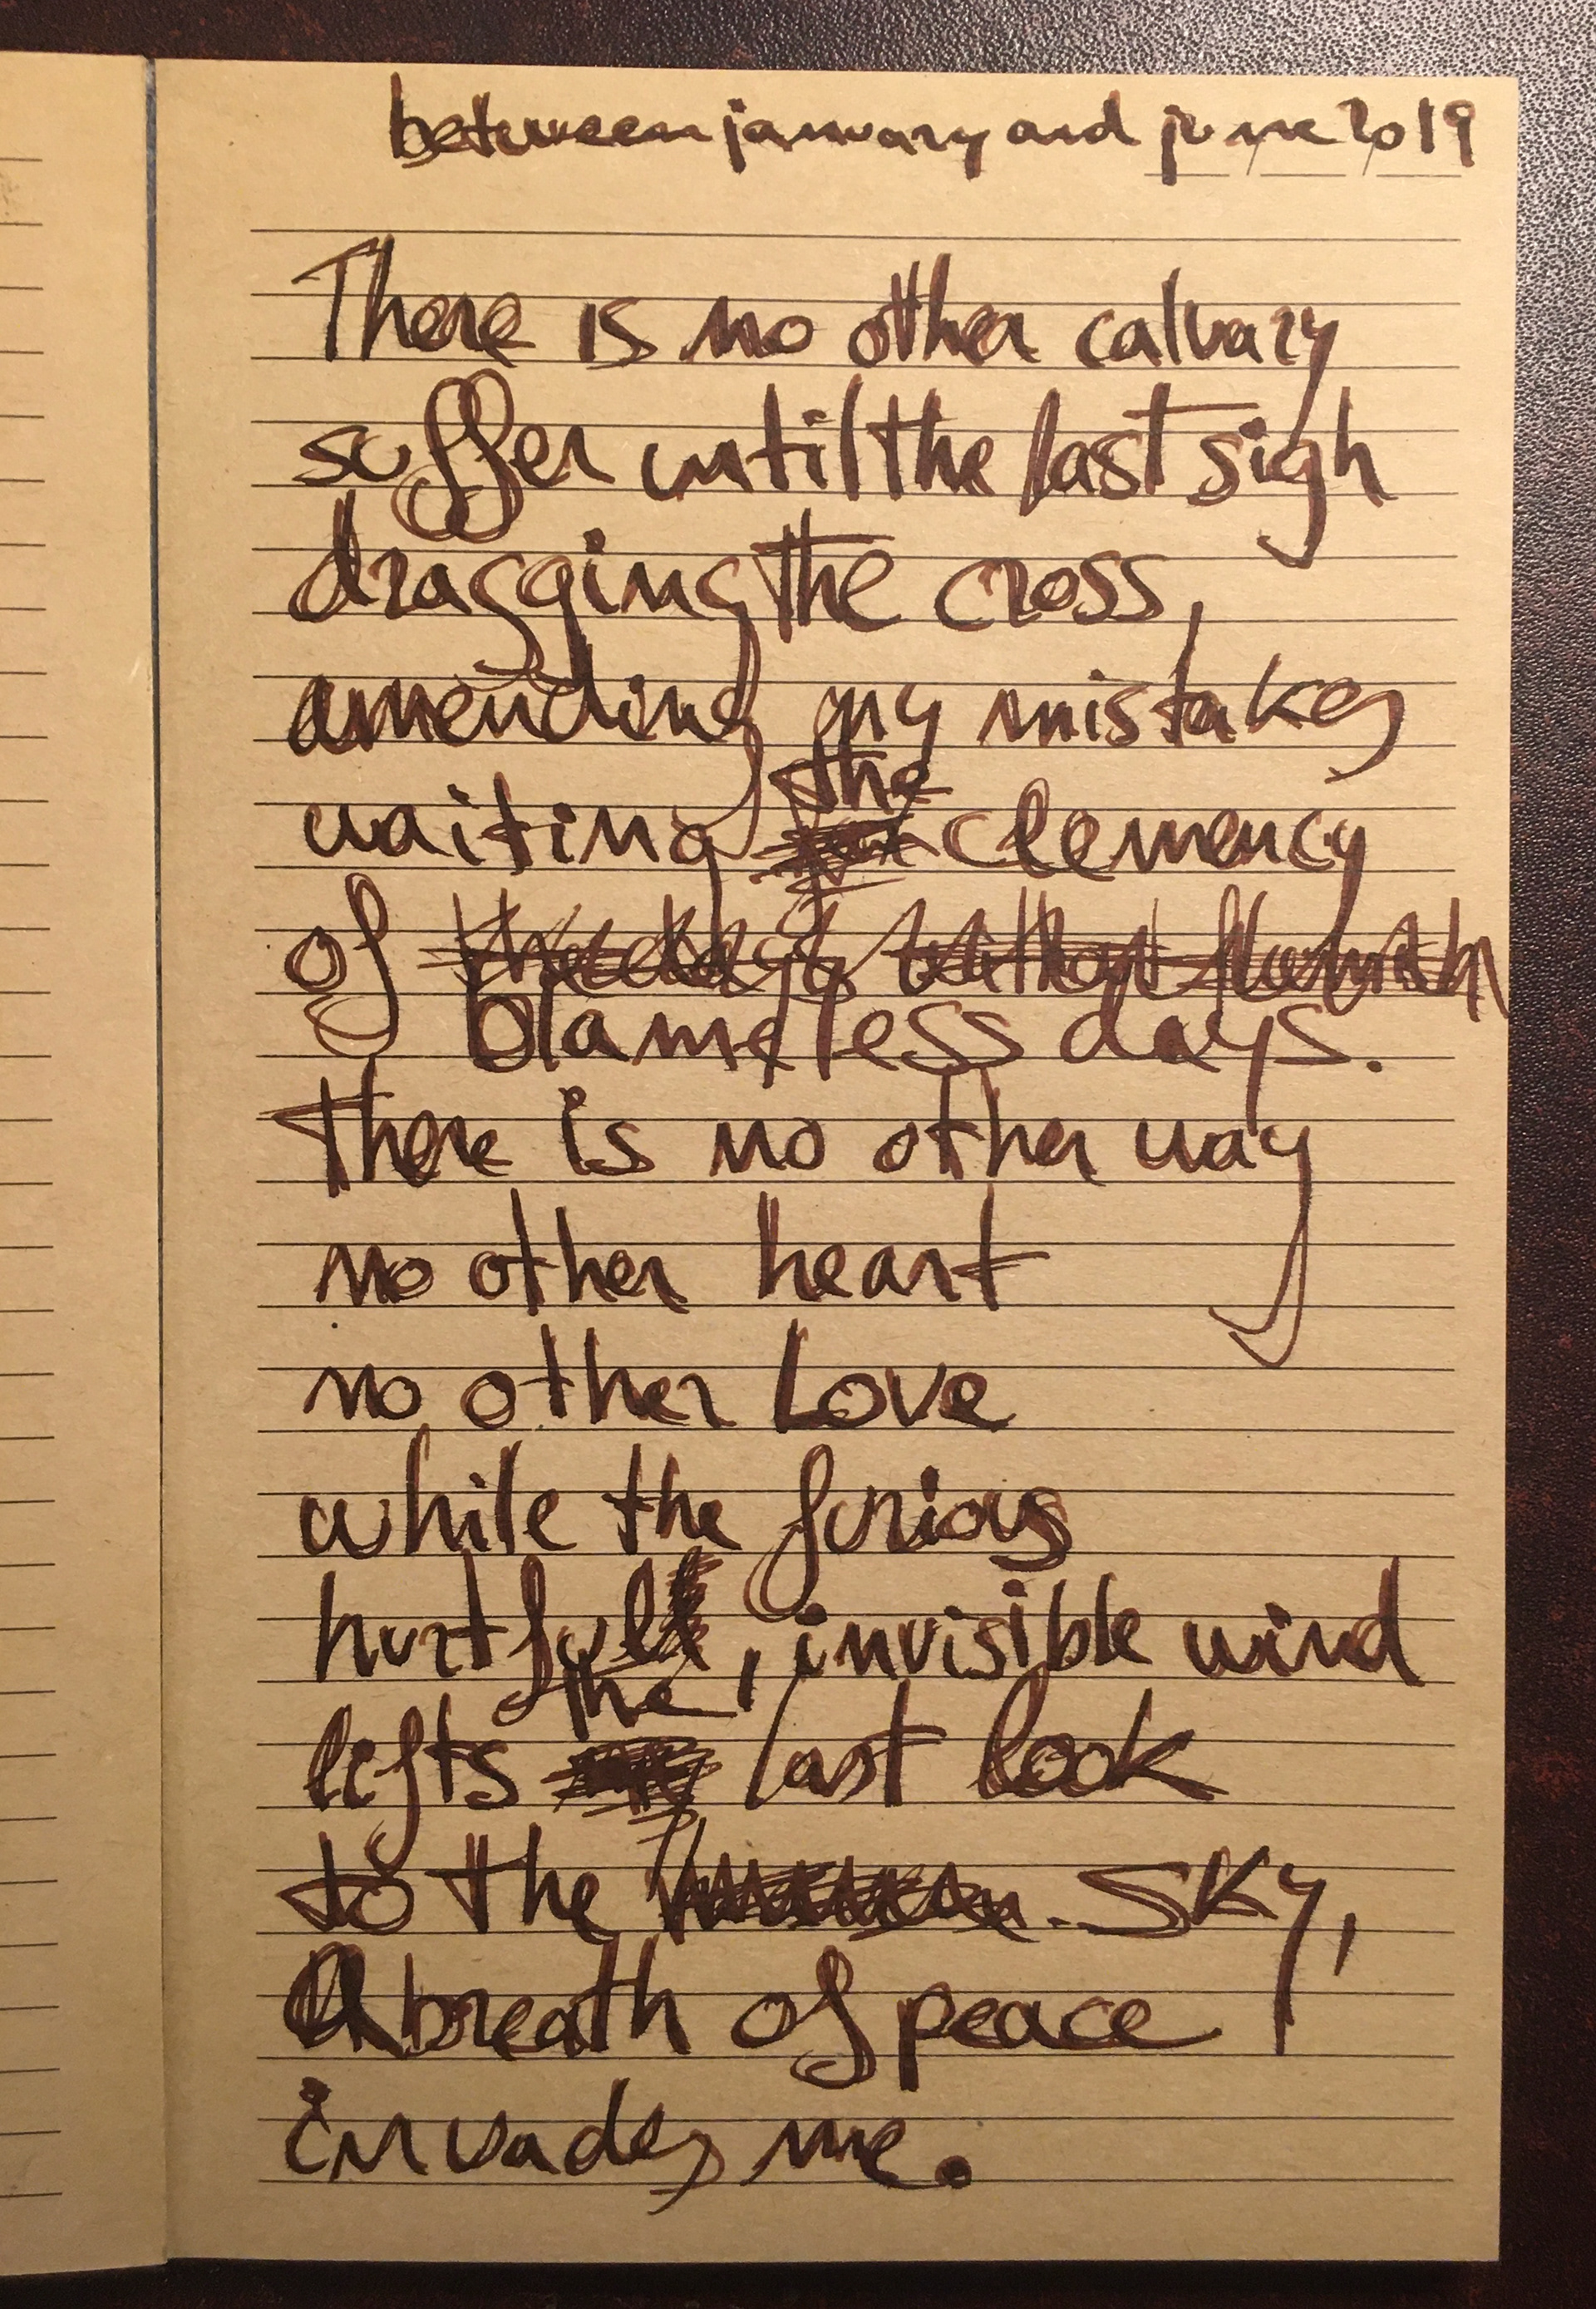 between january and june 2019
There is no other calvary
suffer until the last sigh
dragging the cross,
amending my mistakes
waiting the clemency
of
blameless days.
There is no other way
no other heart
no other Love
while the furious
hurtful, invisible wind
lifts the last look
to the sky,
A breath of peace
invades me.